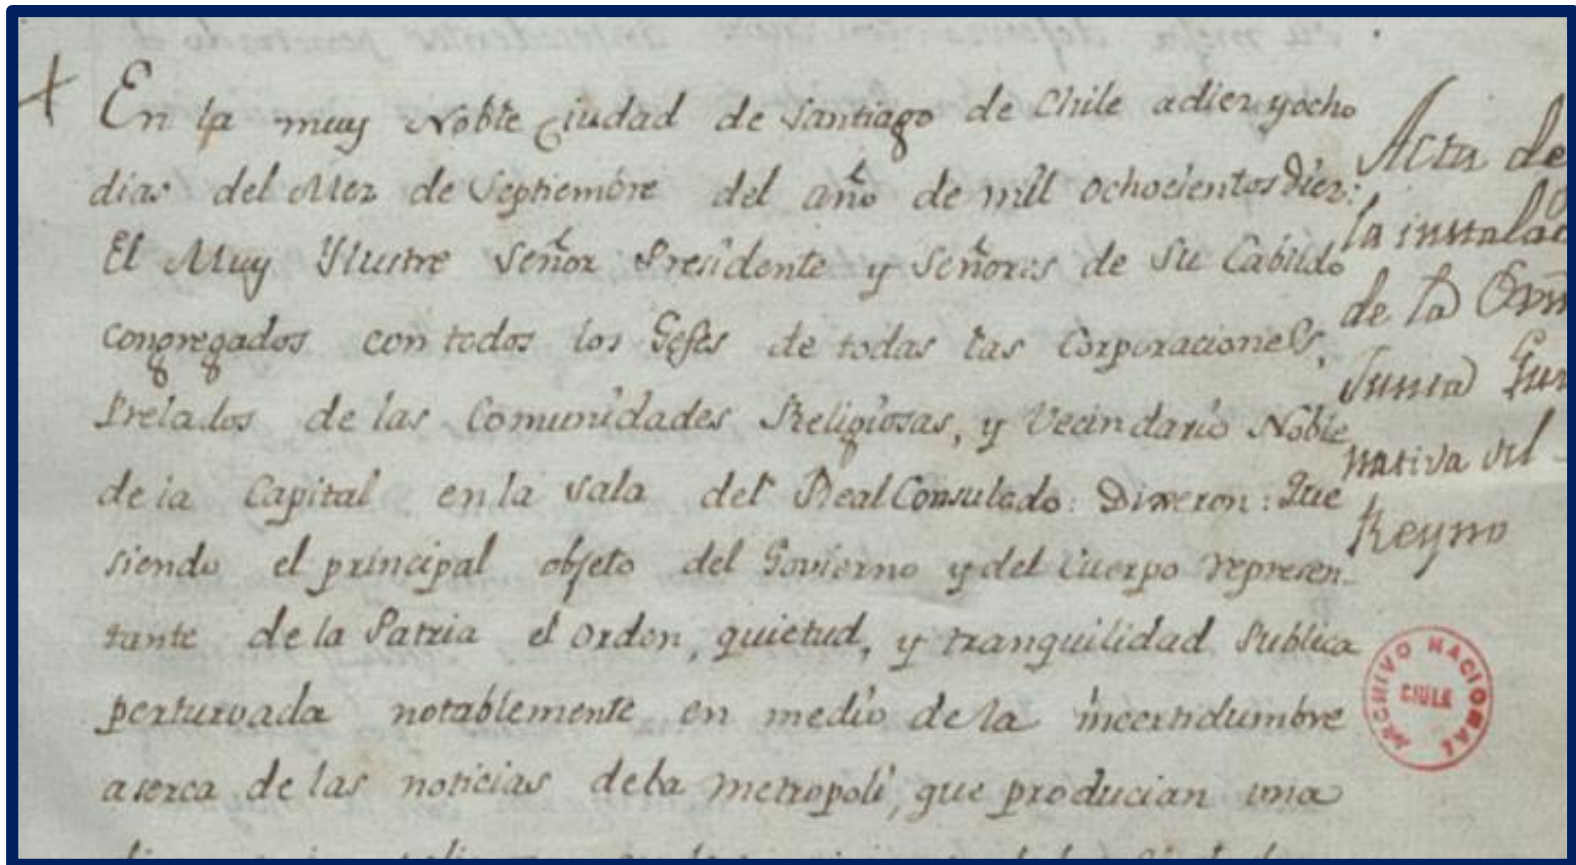 En la muy Noble Ciudad de Santiago de Chile adiez yocho
dias del Mez de Septiembre del año de mil ochocientos Diez:
El Muy Ylustre Señor Presidente y Señores de Su Cabildo
congregados con todos los Gefes de todas las Corporaciones,
Prelados de las Comunidades Religiosas, y Vecindario Noble
de la Capital en la Sala del Real Consulado: Dixeron: Que
siendo el principal objeto del Govierno y del Cuerpo represen-
tante de la Patria el orden, quietud, y tranquilidad Publica
perturvada notablemente en medio de la incertidumbre
acerca de las noticias dela metropoli, que producian una
Acta de
la instalac
de la
Junta Gur
nativa del
Reyno
ARCHIVO NACIONAL
CHILE